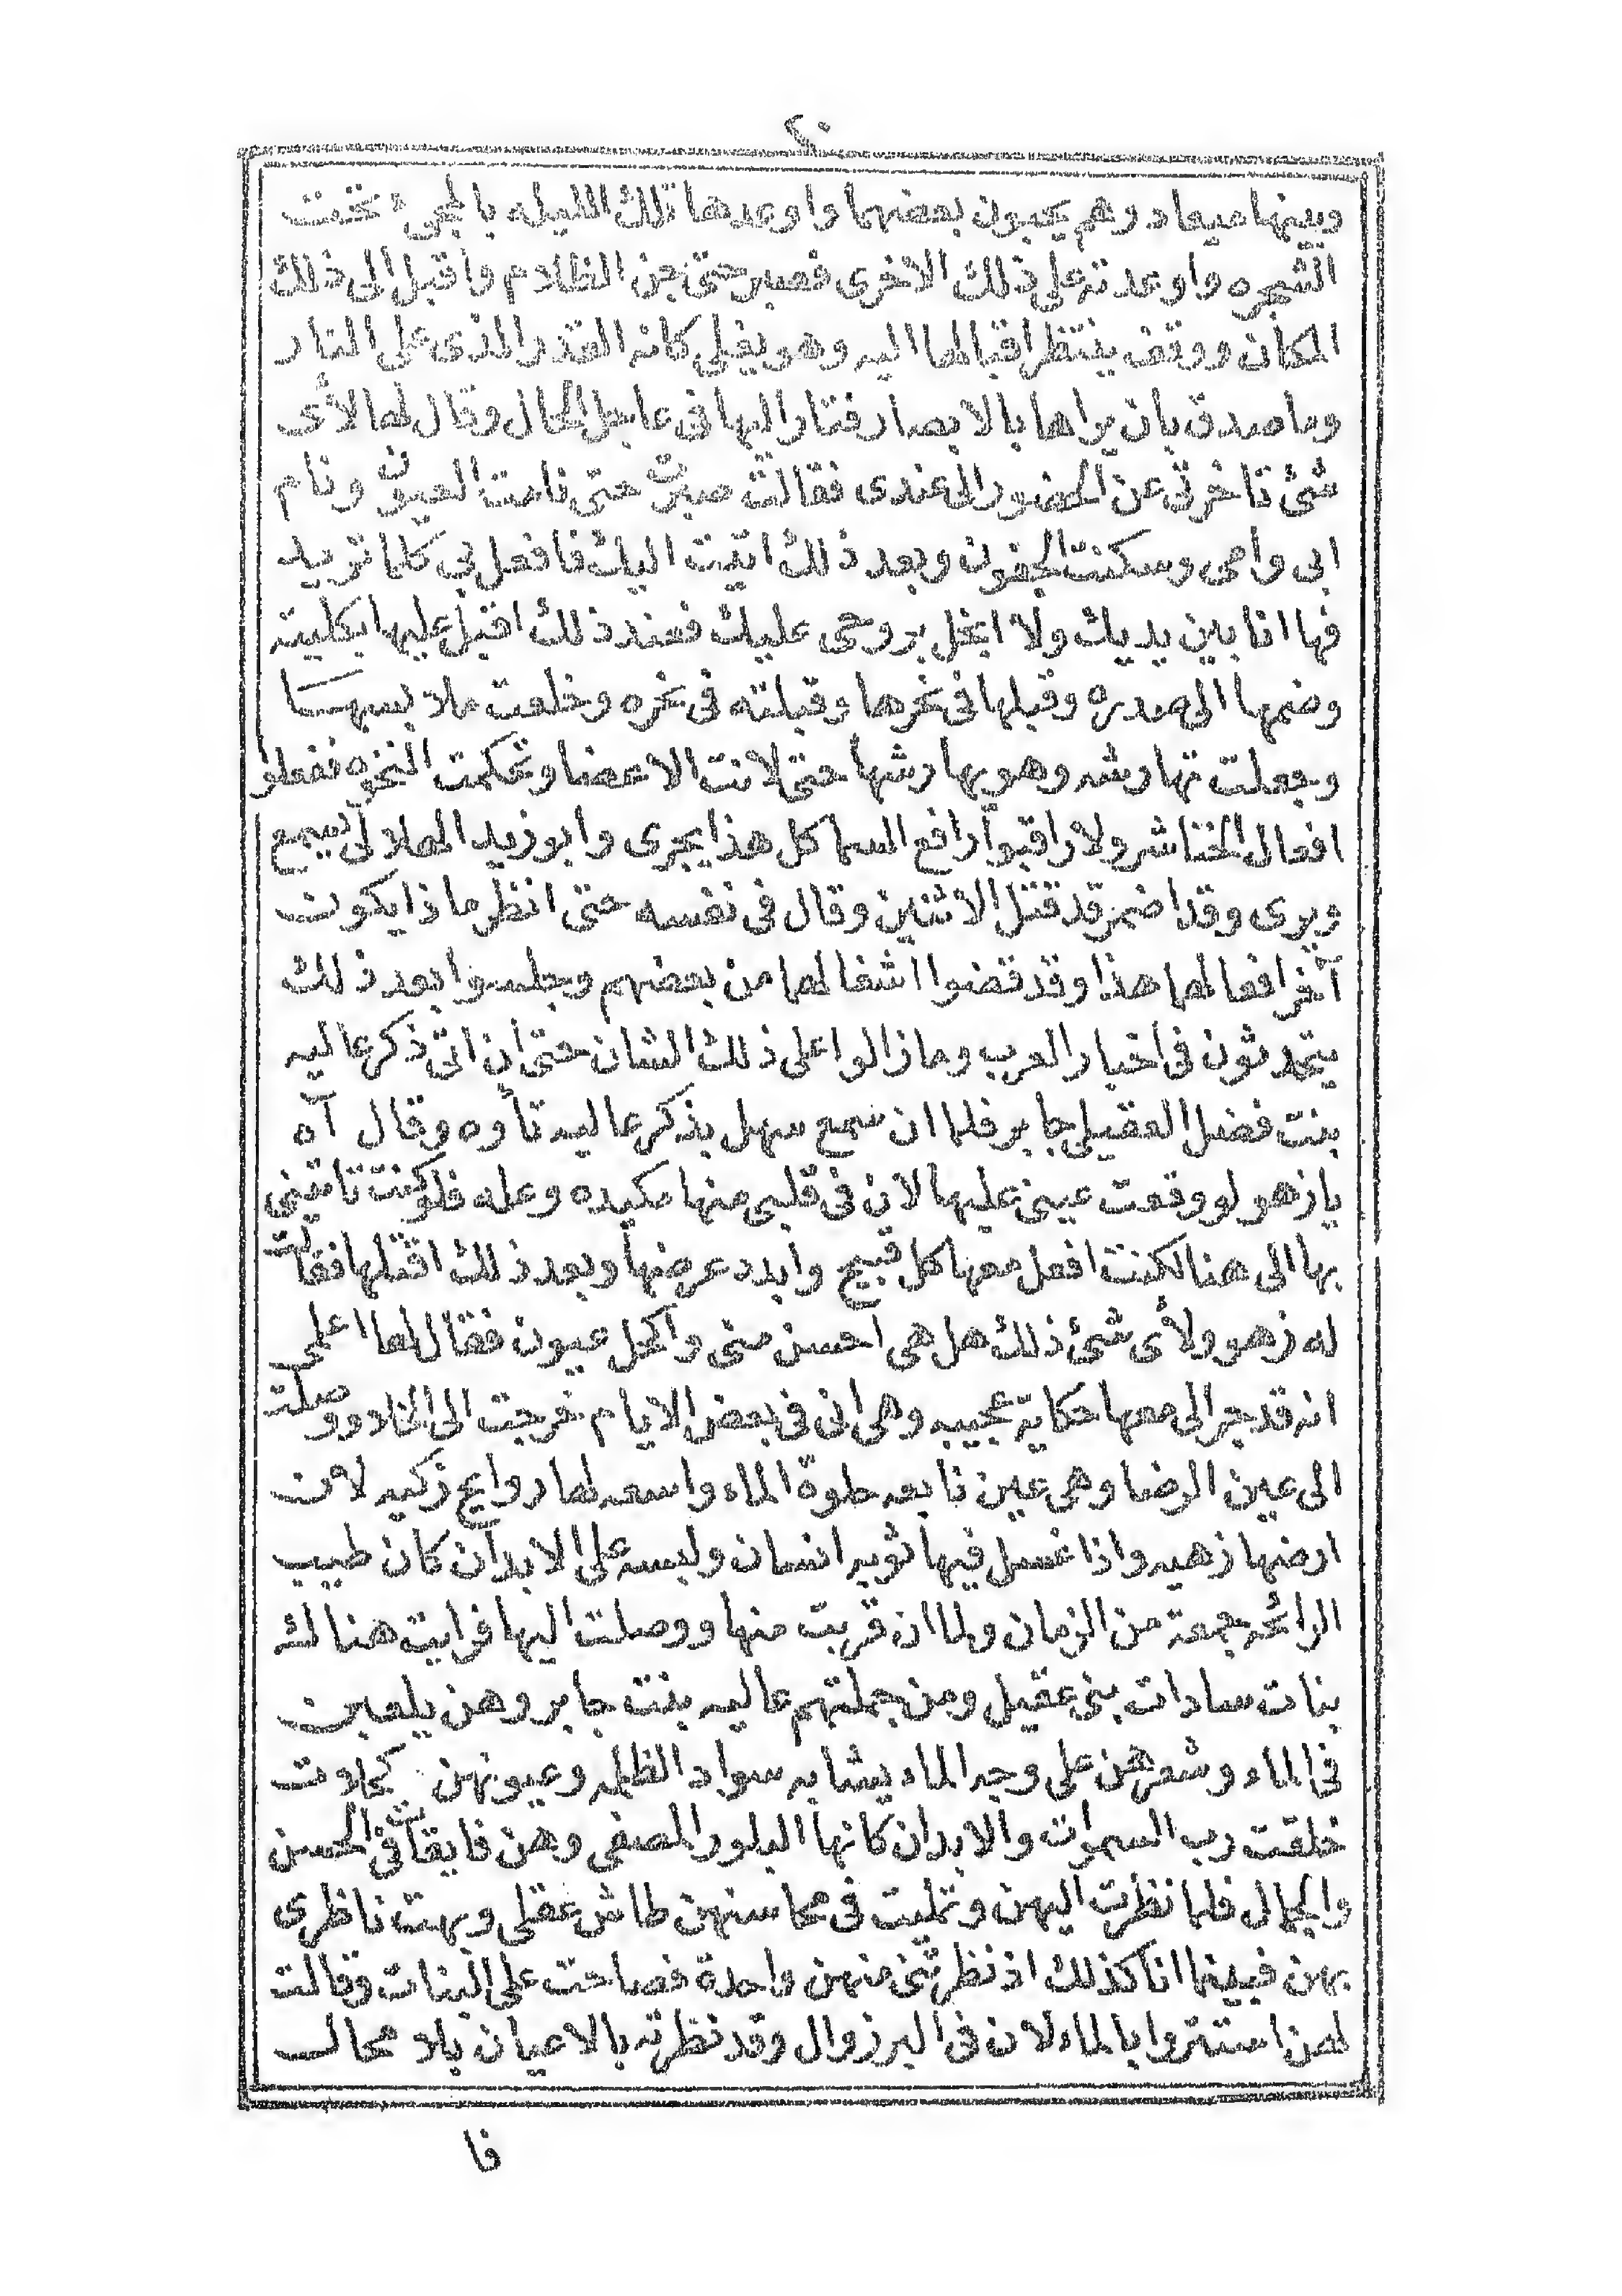 ٢٠
وبينها ميعاد وهم يحبون بعضهما واوعدها تلك الليله بالمجئ تحت
الشجره واوعدته على ذلك الاخرى فصبر حتى جن الظلام واقبل الى ذلك
المكان ووقف ينتظر اقبالها اليه وهو يغلى كانه القدر الذى على النار
وما صدق بان يراها بالابصار فتار اليها فى عاجل الحال وقال لها لأى
شئ تاخرتى عن الحضور الى عندى فقالت صبرت حتى نامت العيون ونام
ابى وامى وسكنت الجفون وبعد ذلك اتيت اليك فافعل بى كلما تريد
فها انا بين يديك ولا ابخل بروحى عليك فعند ذلك اقبل عليها بكليته
وضمها الى صدره وقبلها فى نحرها وقبلته فى نحره وخلعت ملابسها
وجعلت تهارشه وهو يهارشها حتى لانت الاعضا وتحكمت النخوه ففعلوا
افعال الخناشر ولا راقبوا رافع السما كل هذا يجرى وابو زيد الهلالى يسمع
ويرى وقد اضمر قد قتل الاثنين وقال فى نفسه حتى انظر ماذا يكون
آخر افعالها هذا وقد قضوا اشغالها من بعضهم وجلسوا بعد ذلك
يتحدثون فى اخبار العرب وما زالوا على ذلك الشان حتى ان اتى ذكر عاليه
بنت فضل العقيلى جابر فلما ان سمع سهل بذكر عاليه تأوه وقال آه
يا زهو لو وقعت عينى عليها لان فى قلبى منها مكيده وعله فلو كنت تاتينى
بها الى هنا لكنت افعل معها كل قبيح وابدد عرضها وبعد ذلك اقتلها فقالت
له زهو ولأى شئ ذلك هل هى احسن منى واكحل عيون فقال لها اعلمى
انه قد جرالى معها حكاية عجيبه وهى انى فى بعض الايام خرجت الى الخلا ووصلت
الى عين الرضا وهى عين نابعه حلوة الماء واسعه لها روايح زكيه لان
ارضها زهيه واذا غسل فيها ثوبه انسان ولبسه على الابدان كان طيب
الرائحه جمعة من الزمان ولما ان قربت منها ووصلت اليها فرايت هناك
بنات سادات بنى عقيل ومن جملتهم عاليه بنت جابر وهن يلعبن
فى الماء وشعرهن على وجه الماء يشابه سواد الظلمه وعيونهن كحلات
خلقت رب السموات والابدان كانها البلور المصفى وهن فايقات فى الحسن
والجمال فلما نظرت اليهن وتمليت فى محاسنهن طاش عقلى وبهت ناظرى
بهن فبينما انا كذلك اذ نظرتنى منهن واحدة فصاحت على البنات وقالت
لهن استتروا بالماء لان فى البر زوال وقد نظرته بالاعيان بلا محال
فا